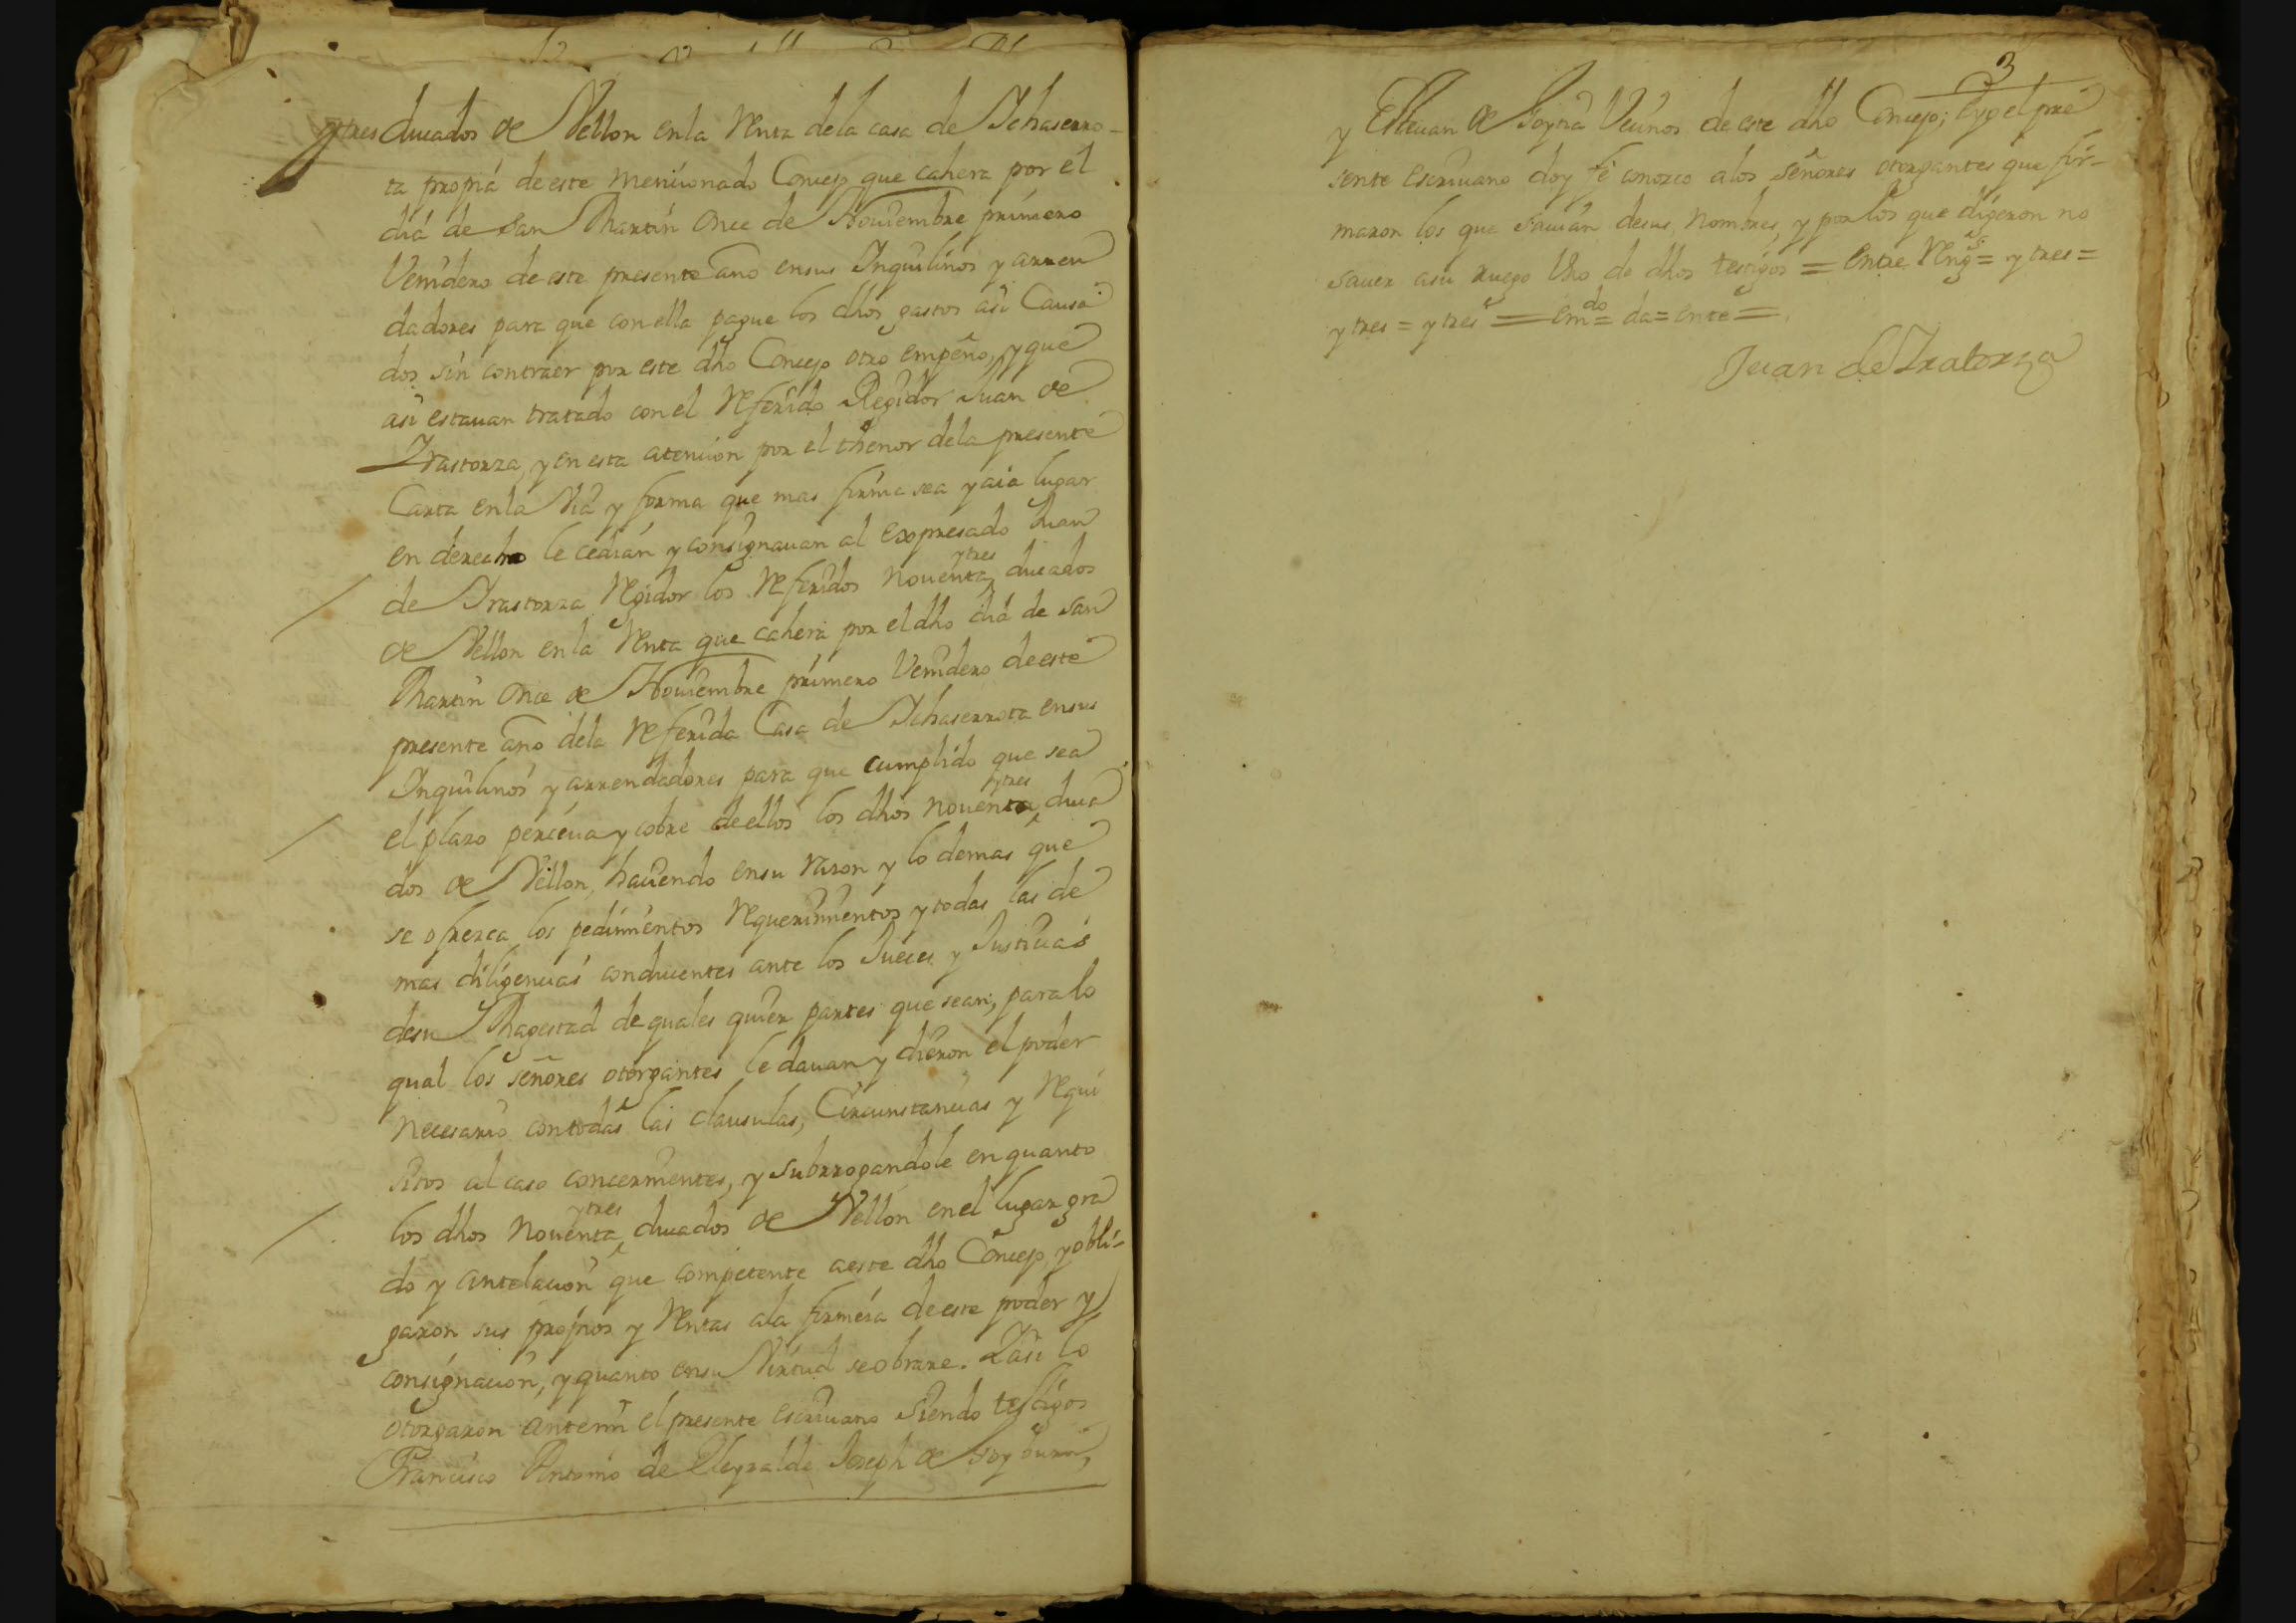 ytres ducados de Vellon enla renta dela casa de Ichaserro-
ta propia de este mencionado Concejo que cahera por el
dia de san Martin Once de Noviembre primero
Venidero de este presente año ensus Inquilinos y arren
dadores para que con ella pague los dhos gastos asi Causa
dos sin contraer por este dho Concejo otro empeño, y que
asi estauan tratado con el referido Regidor Juan de
Irastorza, y en esta atencion por el thenor dela presente
Carta enla Via y forma que mas firme sea y aia lugar
en derecho le cedian y consignauan al expresado Juan
de Irastorza regidor los referidos nouenta ytres ducados
de Vellon enla renta que cahera por el dho dia de san
Martin Once de Noviembre primero Venidero de este
presente año dela referida Casa de Ichaserrota ensus
Inquilinos y arrendadores para que cumplido que sea
el plazo perceua y cobre de ellos los dhos nouenta ytres duca
dos de Vellon, haciendo ensu razon y lo demas que
se ofrezca los pedimientos requerimientos y todas las de
mas diligencias conducentes ante los Jueces y Justicias
desu Magestad de quales quier partes que sean, para lo
qual los señores otorgantes le dauan y dieron el poder
necesario contodas las clausulas, Circunstancias y requi
sitos al caso concernientes, y subrrogandole en quanto
los dhos nouenta ytres ducados de Vellon en el lugar gra
do y antelacion que competente aeste dho Concejo, y obli-
garon sus propios y rentas ala firmeza de este poder y
consignacion, y quanto ensu Virtud se obrare. Yasi lo
otorgaron antemi el presente escriuano siendo testigos
Francisco Antonio de Joseph de
3
y Esteuan de Vecinos de este dho Concejo; eyo el pre
sente escriuano doy fe conozco alos señores otorgantes que fir-
maron los que sauian desus nombres, y por los que digeron no
sauer asu ruego Uno de dhos testigos = Entre rengs = y tres =
y tres = y tres = emdo = da = ente =
Juan de Iratorza